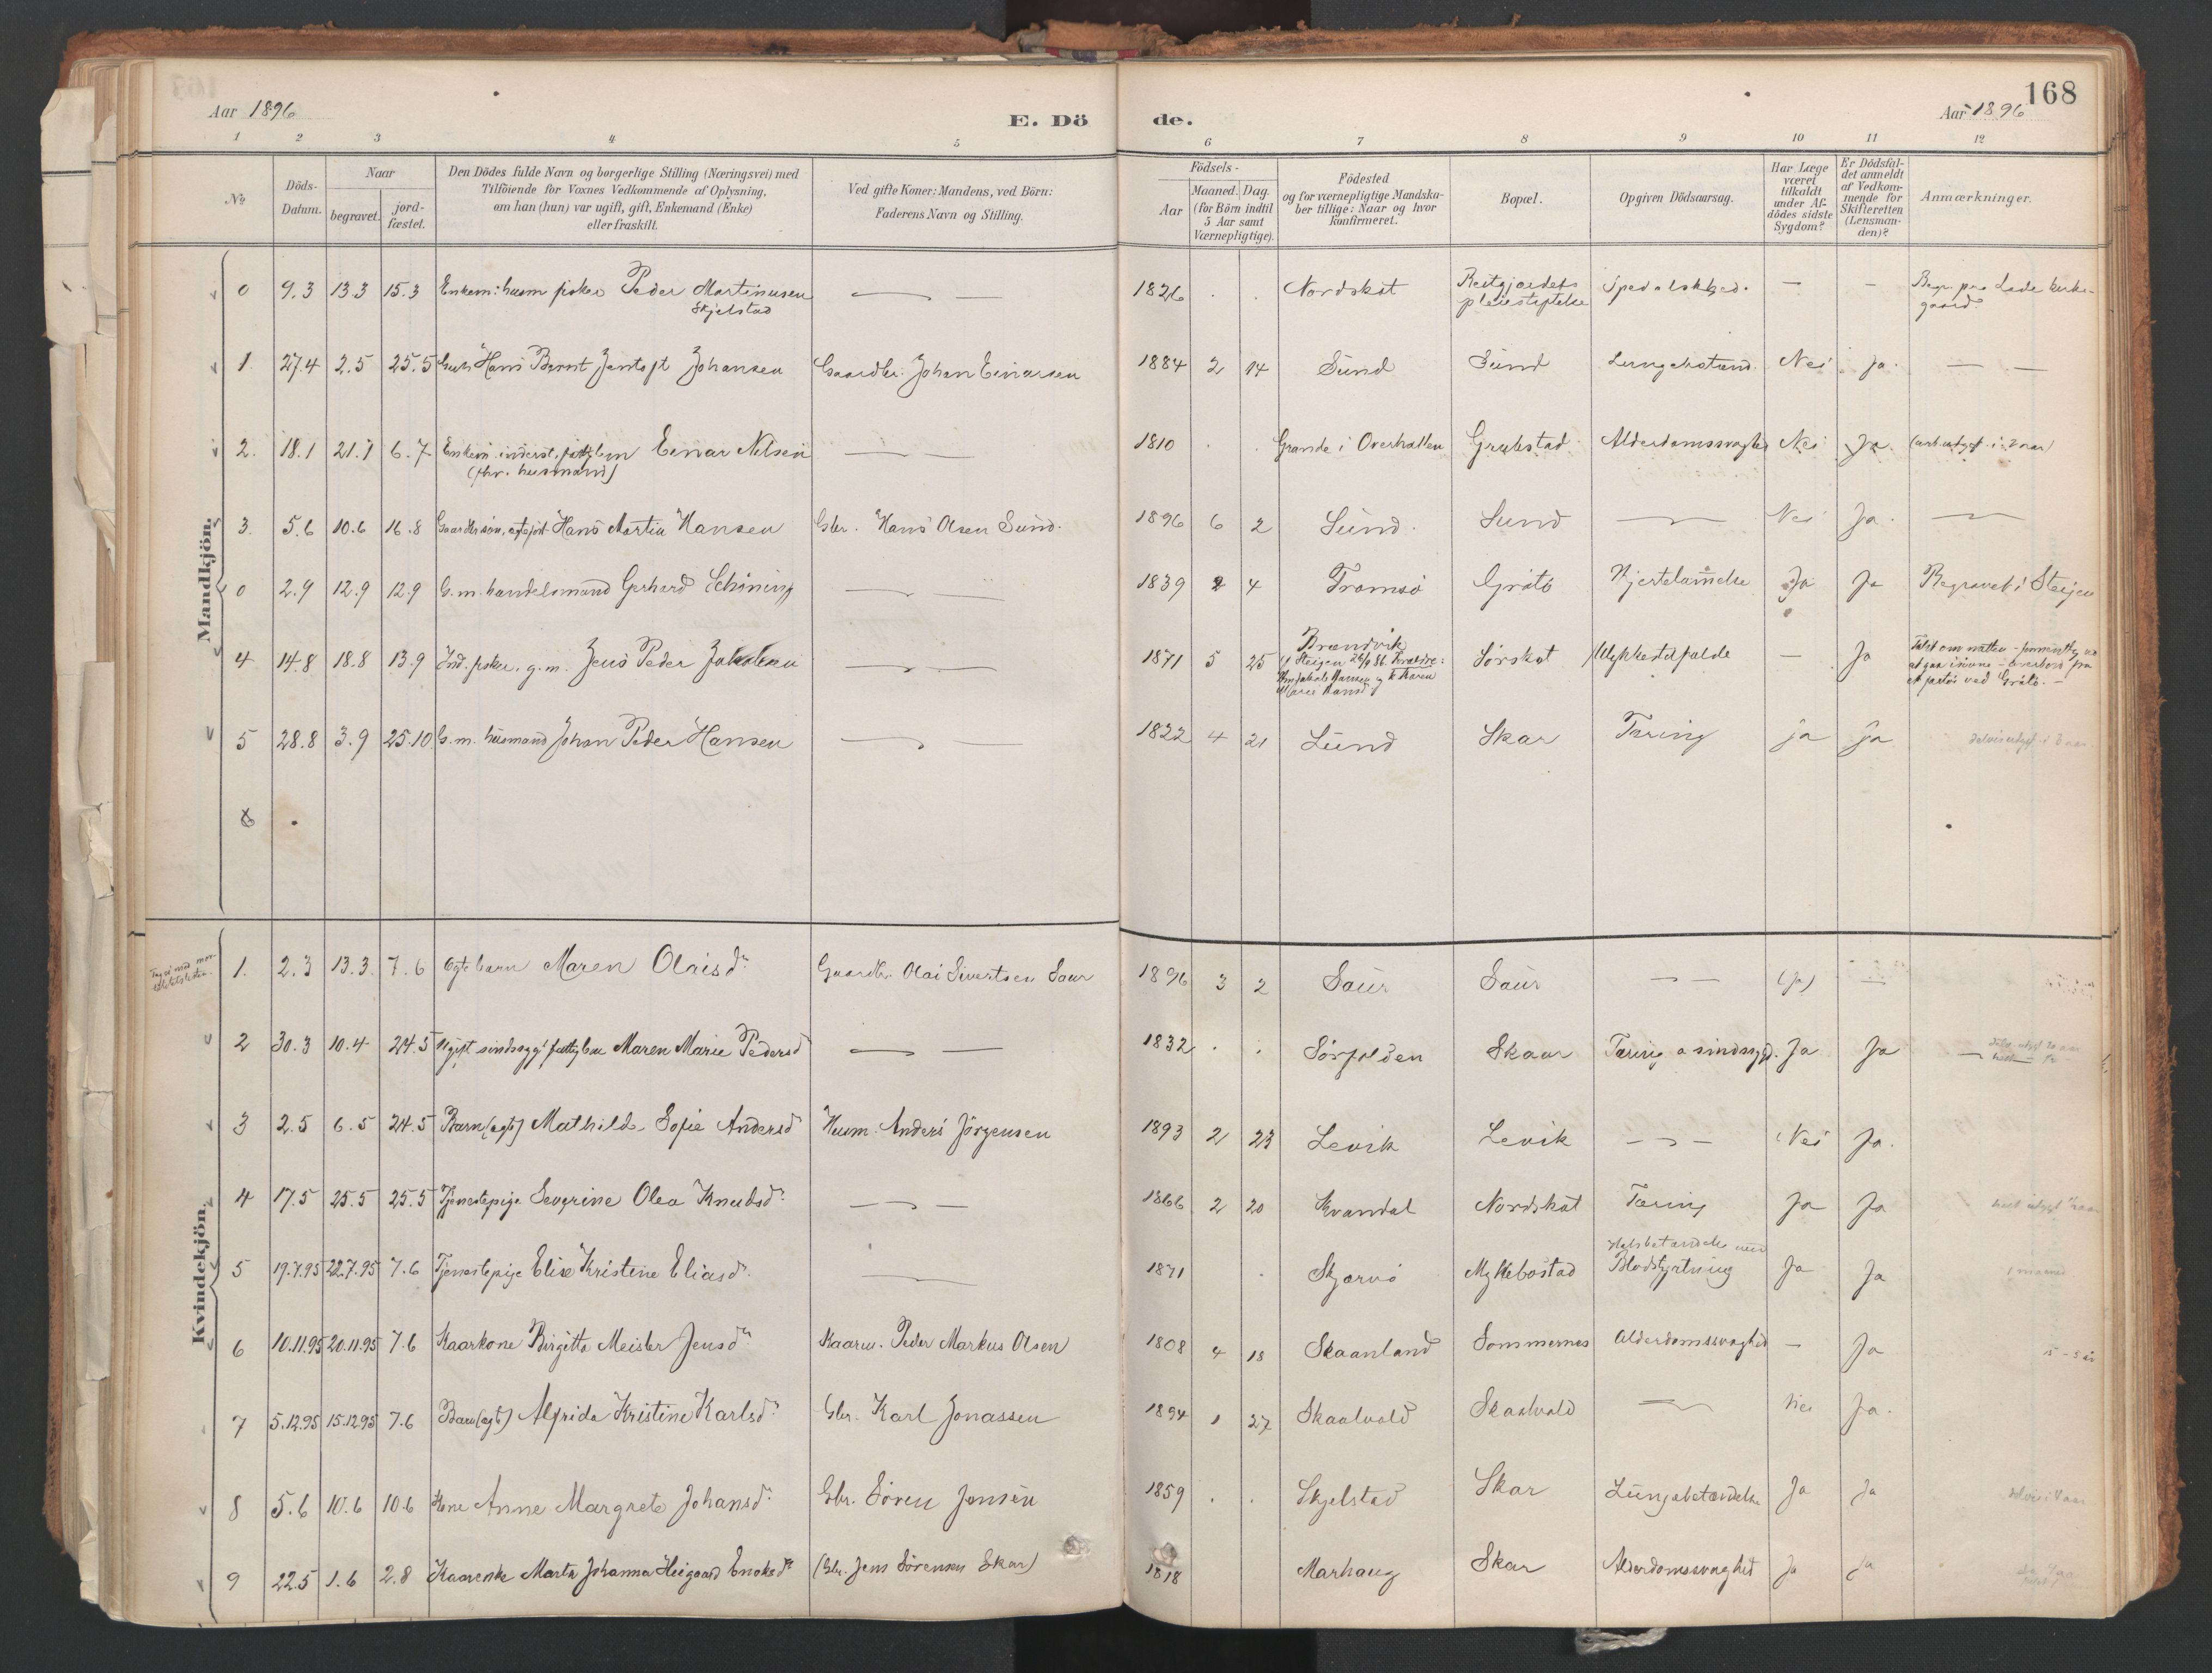 168
Aar 1896
E. Dö
de.
Aar 1896
1 2 3 4 5 6 7 8 9 10 11 12
No
Döds-Datum.
Naar
begravet.
jord-fæstet.
Den Dödes fulde Navn og borgerlige Stilling (Næringsvei) med
Tilföiende for Voxnes Vedkommende af Oplysning,
om han (hun) var ugift, gift, Enkemand (Enke)
eller fraskilt.
Ved gifte Koner: Mandens, ved Börn:
Faderens Navn og Stilling.
Födsels-
Aar
Maaned. Dag.
(for Börn indtil
5 Aar samt
Værnepligtige).
Födested
og for værnepligtige Mandska-
ber tillige: Naar og hvor
konfirmeret.
Bopæl.
Opgiven Dödsaarsag.
Har Læge
været
tilkaldt
under Af-
dödes sidste
Sygdom?
Er Dödsfal-
det anmeldt
af Vedkom-
mende for
Skifteretten
(Lensman-
den)?
Anmærkninger.
Mandkjön.
0 9.3 13.3 15.3 Enkem: husm fisker Peder Martinusen Skjelstad 1826 Nordskot Reitgjærdets pleiestiftelse Spedalskhed. Begr. paa Lade kirkegaard.
1. 27.4 2.5 25.5 Hans Bernt Johansen Gaardbr. Johan Einarsen 1884 2 14 Sund Sund Nei ja.
2. 18.1 21.1 6.7 Enkem. inderst, fattiglem Einar Nilsen (fhv. husmand) 1810 Grande i Overhallen Grubstad Alderdomssvaghed Nei Ja.
3. 5.6 10.6 16.8 Hans Martin Hansen Gbr. Hans Olsen Sund. 1896 6 2 Sund. Sund Nei Ja.
0 2.9 12.9 12.9 G. m. handelsmand Gerhard Schöning 1839 2 4 Tromsö Grötö Hjertelammelse Ja Ja Begravet i Steigen
4 14.8 18.8 13.9 Ind. fisker. g. m. Jens Peder 1871 5 25 Brændvik Sörskot Ulykkestilfælde — Ja ved Grötö.
5 28.8 3.9 25.10 G. m. husmand Johan Peder Hansen 1822 4 21 Lund Skar Tæring ja ja
6
Kvindekjön.
1. 2.3 13.3. 7.6 Ægte barn Maren Olaisdr. Gaardbr. Olai Sivertsen Saur 1896 3 2 Saur Saur (ja)
2 30.3 10.4 24.5 Ugift sindssyg fattiglem Maren Marie Pedersd 1832 Sörfolden Skaar Tæring o sindssygd. Ja Ja
3 2.5 6.5 24.5 Barn (ægte) Mathilde Sofie Andersd Husm. Anders Jörgensen 1893 2 23 Levik Levik Nei Ja.
4 17.5 25.5 25.5 Tjenestepige Severine Olea Knudsdr. 1866 2 20 Kvandal Nordskot Tæring Ja Ja
5 19.7.95 22.7.95 7.6 Tjenestepige Elise Kristine Eliasdr. 1871 Skjærvö Myklebostad Halsbetændelse med Blodstyrtning Ja Ja 1 maaned
6 10.11.95 20.11.95 7.6 Kaarkone Birgitta Meisler Jensdr Kaarm. Peder Markus Olsen 1808 4 18 Skaanland Sommernes Alderdomssvaghed — Ja
7 5.12.95 15.12.95 7.6 Barn (ægte) Alfrida Kristine Karlsdr. Gbr. Karl Jonassen 1894 1 27 Skaalvold Skaalvold Nei Ja.
8 5.6 10.6 10.6 Kone Anne Margrete Johansdr. Gbr. Sören Jensen 1859 Skjelstad Skar Lungebetændelse Ja Ja
9 22.5 1.6 2.8 Kaarenke Marta Johanna Heigaard Enoksdr (Gbr. Jens Sörensen Skar) 1818 Marhaug Skar Alderdomssvaghed Ja Ja